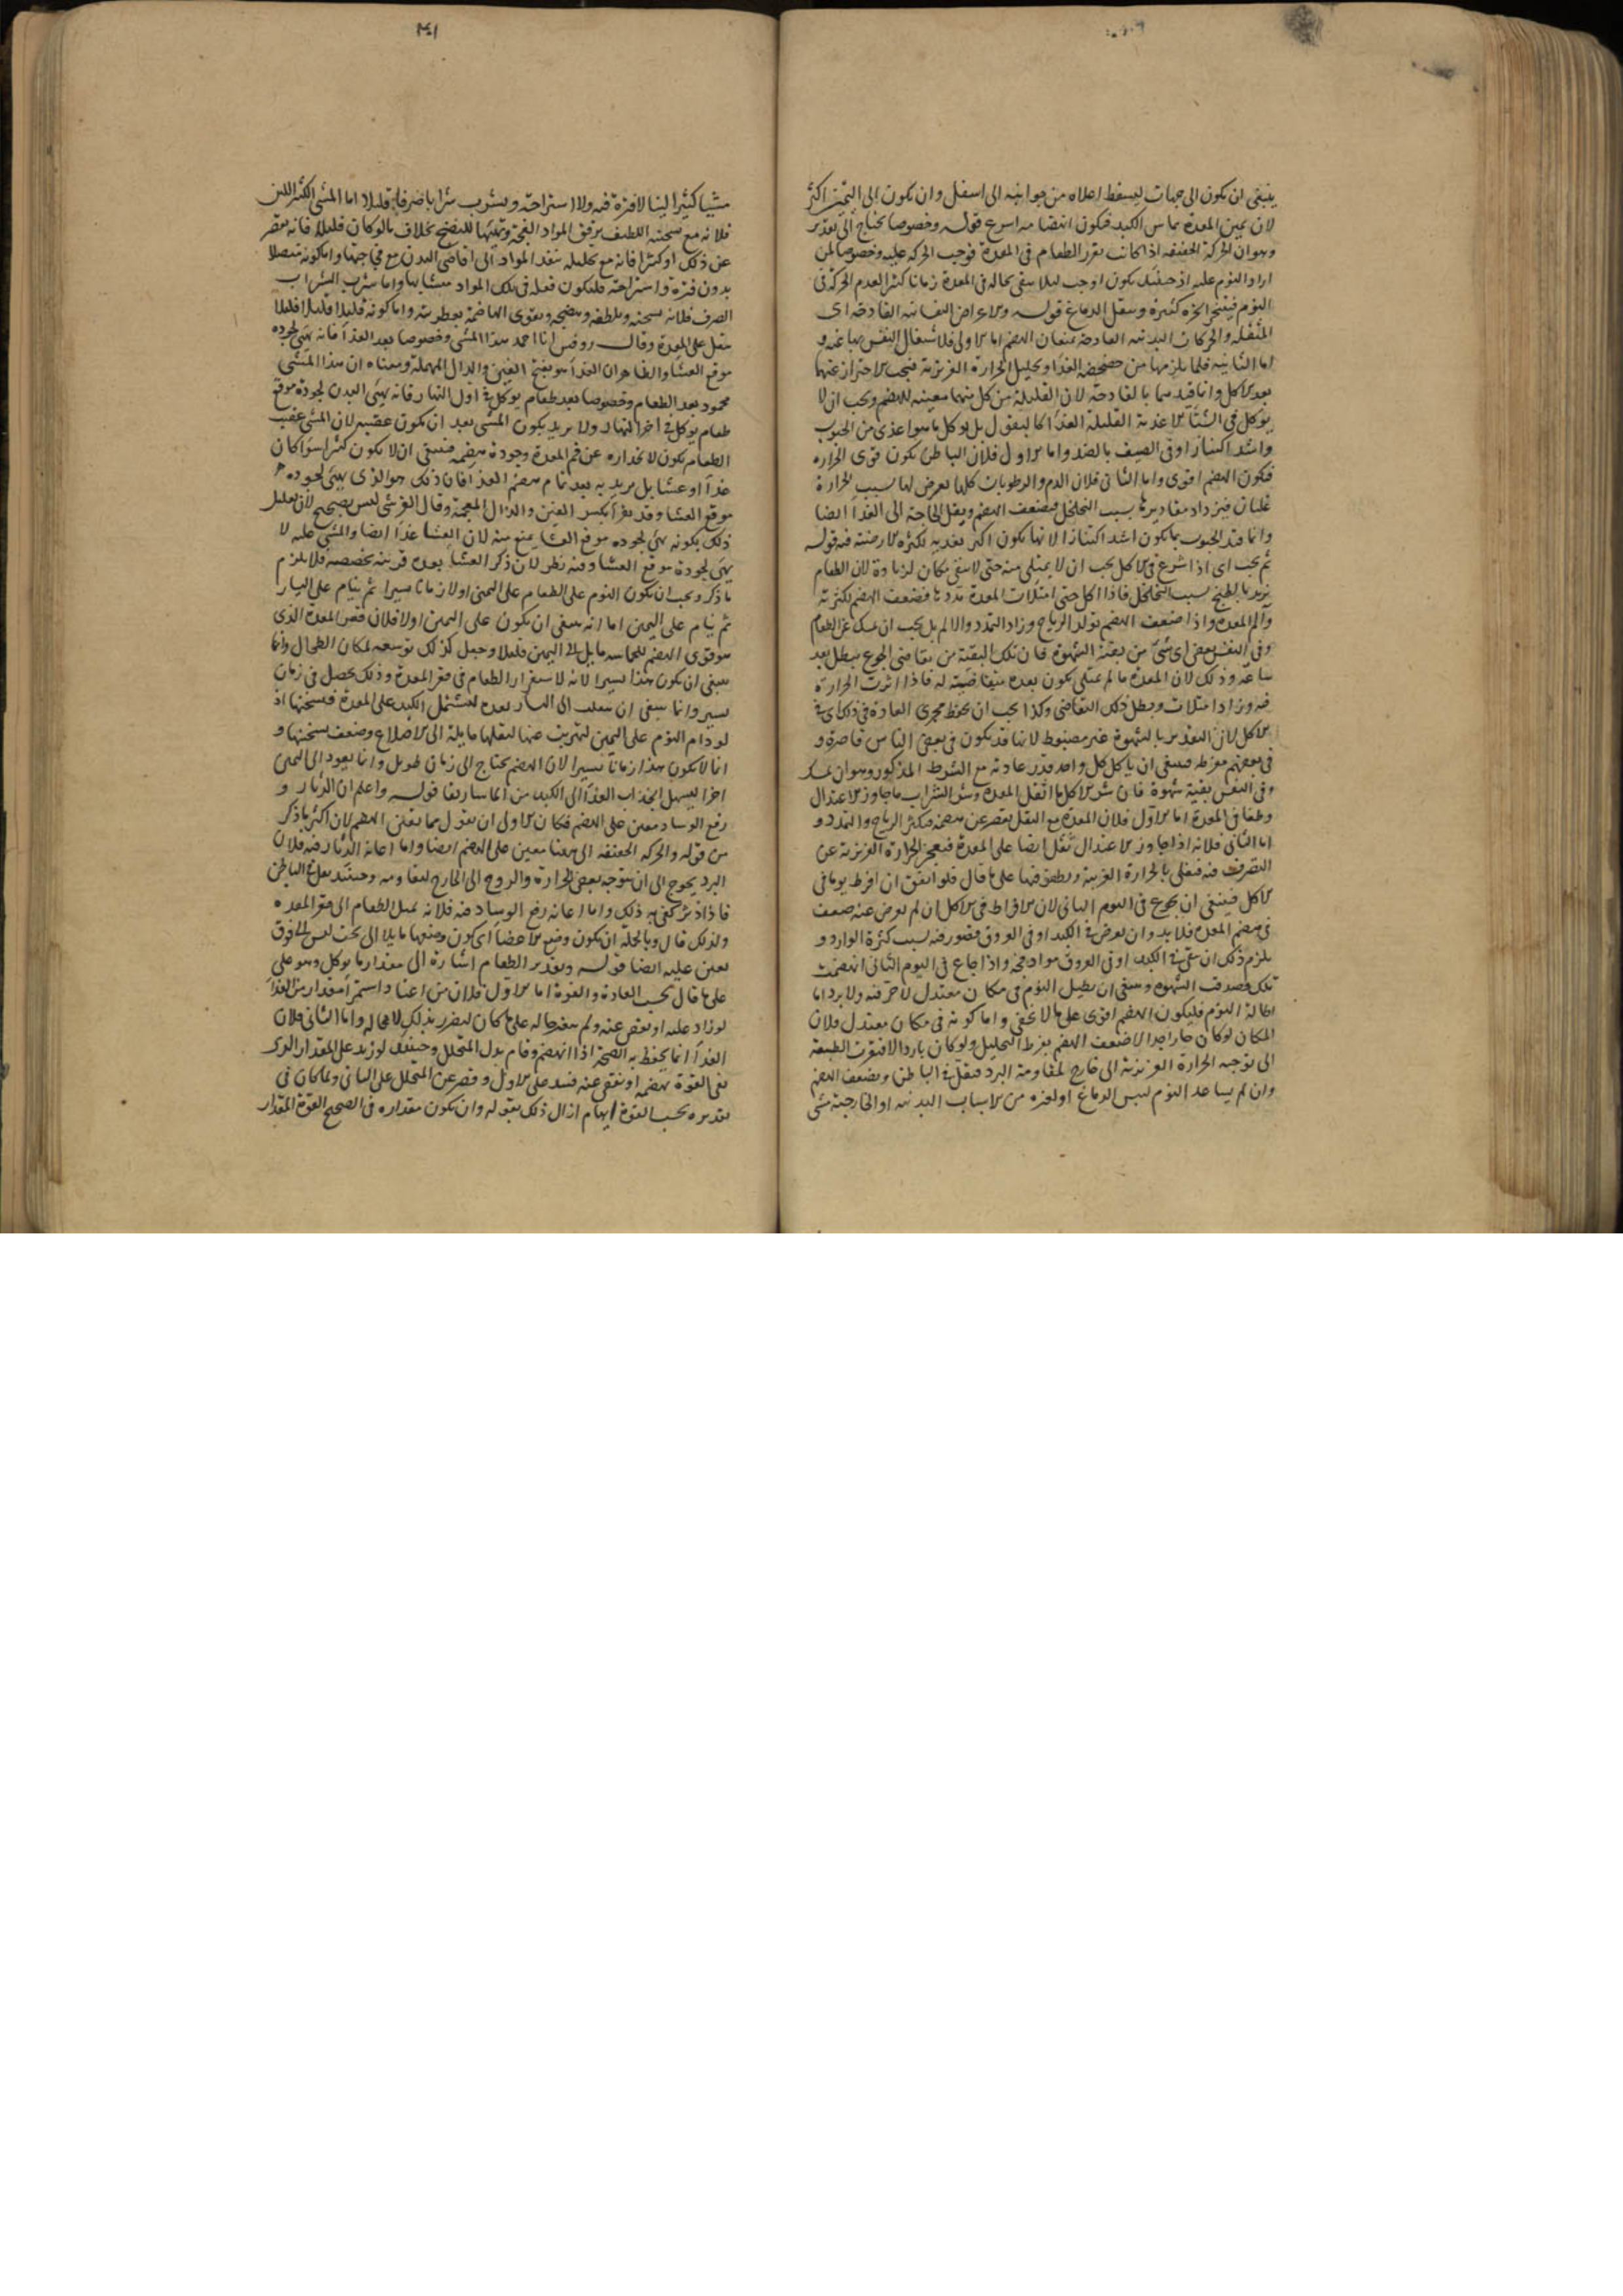 ينبغى ان يكون الى جهات ليسقط اعلاه من جوانبه الى اسفل وان يكون الى اليمين اكثر
لان يمين المعدة يماس الكبد فيكون انهضامه اسرع قوله وخصوصا يحتاج الى تقدير
وهو ان الحركة الخفيفه اذا كانت تقرر الطعام فى المعدة فوجب الحركه عليه وخصوصا لمن
اراد النوم عليه اذ حينئذ يكون اوجب ليلا يبقى بحاله فى المعدة زمانا كثيرا لعدم الحركة فى
النوم فيتبخر ابخرة كثيرة ويثقل الدماغ قوله والاعراض النفسانيه الفادحه اى
المثقله والحركات البدنيه الفادحة يمنعان الهضم اما الاولى فلاشتغال النفس بها عنه و
اما الثانيه فلما يلزمها من خضخضة الغذاء وتحليل الحرارة الغريزية فيجب الاحتراز عنهما
بعد الاكل وانما قيدهما بالفادحة لان القليلة من كل منهما معينه للهضم ويجب ان لا
يوكل فى الشتاء الاغذية القليلة الغذاء كالبقول بل يوكل ما هو اغذى من الحبوب
واشد اكتنازا وفى الصيف بالضد واما الاول فلان الباطن يكون قوى الحراره
فيكون الهضم اقوى واما الثانى فلان الدم والرطوبات كلها يعرض لها بسبب الحرارة
غليان فيزداد مقاديرها بسبب التخلخل فيضعف الهضم ويقل الحاجة الى الغذاء ايضا
وانما قيد الحبوب بما يكون اشد اكتنازا لانها يكون اكثر تغذيه لكثرة الارضية فيه قوله
ثم يجب اى اذا شرع فى الاكل يجب ان لا يمتلى منه حتى لا يبقى مكان لزيادة لان الطعام
يزيد بالطبخ بسبب التخلخل فاذا اكل حتى امتلات المعدة تمددها فضعف الهضم لكثرته
والم المعدة واذا ضعف الهضم تولد الرياح وزاد التمدد والالم بل يجب ان يمسك عن الطعام
وفى النفس بعض اى شىء من بقية الشهوة فان تلك البقية من تقاضى الجوع يبطل بعد
ساعة وذلك لان المعدة ما لم يمتلى يكون بعده متقاضية له فاذا اثرت الحرارة
فيه وزاد امتلات وبطل ذلك التقاضى وكذا يجب ان يحفظ مجرى العادة فى ذلك اى فى
الاكل لان التقدير بالشهوة غير مضبوط لانها قد يكون فى بعض الناس قاصرة و
فى بعضهم مفرطه فينبغى ان ياكل كل واحد قدر عادته مع الشرط المذكور وهو ان يمسك
وفى النفس بقية شهوة فان شر الاكل ما اثقل المعدة وشر الشراب ما جاوز الاعتدال
وطفا فى المعدة اما الاول فلان المعدة مع الثقل يقصر عن هضمه فيكثر الرياح والتمدد و
اما الثانى فلانه اذا جاوز الاعتدال ثقل ايضا على المعدة فيعجز الحرارة الغريزية عن
التصرف فيه فيغلى بالحرارة الغريبة ويطفو فيها على ما قال فلو اتفق ان افرط يوما فى
الاكل فينبغى ان يجوع فى اليوم الثانى لان الافراط فى الاكل ان لم يعرض عنه ضعف
فى هضم المعدة فلا بد وان يعرض فى الكبد او فى العروق قصور فيه لسبب كثرة الوارد و
يلزم ذلك ان يبقى فى الكبد او فى العروق مواد فجه واذا جاع فى اليوم الثانى انهضمت
تلك وصدقت الشهوة وينبغى ان يطيل النوم فى مكان معتدل لا حر فيه ولا برد اما
اطالة النوم فليكون الهضم اقوى على ما لا يخفى واما كونه فى مكان معتدل فلان
المكان لو كان حارا جدا لاضعف الهضم بفرط التحليل ولو كان باردا لافتقرت الطبيعة
الى توجيه الحرارة الغريزية الى خارج لمقاومة البرد فيقل فى الباطن ويضعف الهضم
وان لم يساعد النوم ليبس الدماغ او لغيره من الاسباب البدنيه او الخارجية مشى
مشيا كثيرا لينا لا فترة فيه ولا استراحة ويشرب شرابا صرفا قليلا اما المشى الكثير اللين
فلانه مع تسخينه اللطيف يرقق المواد الفجة ويهيئها للنضج بخلاف ما لو كان قليلا فانه يقصر
عن ذلك او كثيرا فانه مع تحليله ينفذ المواد الى اقاصى البدن مع فجاجتها واما كونه متصلا
بدون فترة واستراحة فليكون فعله فى تلك المواد متشابها واما شرب الشراب
الصرف فلانه يسخنه ويلطفه وينضجه ويقوى الهاضمة بعطريته واما كونه قليلا قليلا فلئلا
يثقل على المعدة وقال روفس انا احمد هذا المشى وخصوصا بعد الغذاء فانه يهىء لجوده
موقع العشاء والظاهر ان الغداء هو بفتح الغين والدال المهملة ومعناه ان هذا المشى
محمود بعد الطعام وخصوصا بعد طعام يوكل فى اول النهار فانه يهيىء البدن لجودة موقع
طعام يوكل فى اخر النهار ولا يريد بكون المشى بعد ان يكون عقيبه لان المشى عقيب
الطعام يكون لانحداره عن فم المعدة وجودة هضمه فينبغى ان لا يكون كثيرا سواء كان
غداء او عشاء بل يريد به بعد تمام هضم الغذاء فان ذلك هو الذى يهىء لجوده
موقع العشاء وقد يقرا بكسر الغين والذال المعجمة وقال القرشى ليس بصحيح لان تعليل
ذلك بكونه يهىء لجوده موقع العشاء يمنع منه لان العشاء غذاء ايضا والمشى عليه لا
يهىء لجودة موقع العشاء وفيه نظر لان ذكر العشاء بعده قرينة تخصصه فلا يلزم
ما ذكر ويجب ان يكون النوم على الطعام على اليمنى اولا زمانا يسيرا ثم ينام على اليسار
ثم ينام على اليمين اما انه ينبغى ان يكون على اليمين اولا فلان قعر المعدة الذى
هو قوى الهضم للحماسه مايل الى اليمين قليلا وجعل كذلك توسعه لمكان الطحال وانما
ينبغى ان يكون هذا يسيرا لانه لاستقرار الطعام فى قعر المعدة وذلك يحصل فى زمان
يسير وانما ينبغى ان ينقلب الى اليسار بعده ليشتمل الكبد على المعدة فيسخنها اذ
لو دام النوم على اليمين لتهربت عنها لثقلها مايلة الى الاضلاع وضعف تسخينها و
انما لا يكون هذا زمانا يسيرا لان الهضم يحتاج الى زمان طويل وانما يعود الى اليمين
اخرا ليسهل انجذاب الغذاء الى الكبد من الماساريقا قوله واعلم ان الدثار و
رفع الوساد معين على الهضم فكان الاولى ان يقول مما يعين الهضم لان اكثر ما ذكر
من قوله والحركه الخفيفه الى هنا معين على الهضم ايضا واما اعانة الدثار فيه فلان
البرد يحوج الى ان يتوجه بعض الحرارة والروح الى الخارج لتقاومه وحينئذ يقل فى الباطن
فاذا دثر كفى به ذلك واما اعانه رفع الوساد فيه فلانه يميل الطعام الى قعر المعده
ولذلك قال وبالجملة ان يكون وضع الاعضاء اى كون وضعها مايلا الى تحت ليس الى فوق
يعين عليه ايضا قوله وتقدير الطعام اشارة الى مقدار ما يوكل وهو على
على ما قال بحسب العادة والقوة اما الاول فلان من اعتاد استمراء مقدار من الغذاء
لو زاد عليه او نقص عنه ولم يتغير حاله على ما كان ليضرر بذلك لا محاله واما الثانى فلان
الغذاء انما يحفظ به الصحة اذا انهضم وقام بدل المتحلل وحينئذ لو زيد على المقدار الذى
تفى القوة بهضمه او نقص عنه فسد على الاول وقصر عن المتحلل على الثانى ولما كان فى
تقديره بحسب القوة ابهام ازال ذلك بقوله وان يكون مقداره فى الصحيح القوة المقدار